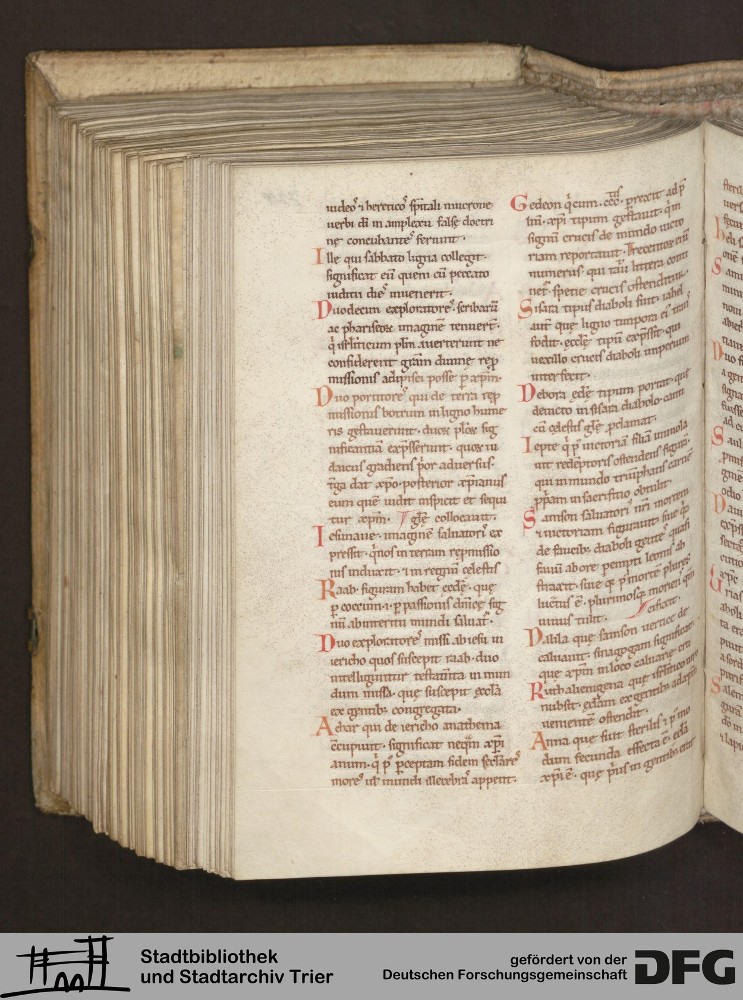 iudeos & hereticos spiritali mucrone
uerbi dī in amplexu false doctri
nę concubantes feriunt.
Ille qui sabbato ligna collegit.
significat eū quem cū peccato
iuditii dies inuenerit.
Duodecim exploratores. scribarū
ac phariseoꝝ imaginē tenuert.
q̇ isrl̄iticum plm̄ auerterunt ne
considerent grām diuinę rep
missionis adipisci posse ꝑ xp̄m.
Duo portitores qui de terra rep
missionis botrum in ligno hume
ris gestauerunt. duoꝝ plōꝝ sig
nificantiā exp̄sserunt. quoꝝ iu
daicus gradiens p̓or aduersus.
t̄ga dat xp̄o. posterior xp̄ianus
eum quē uidit inspicit et sequi
tur xp̄m. gl̄ę collocauit.
Iesu naue. imaginē saluatoris ex
pressit. q̇ nos in terram repmissio
nis induxit. & in regnū celestis
Raab. figuram habet ęccl̄ę. quę
ꝑ coccum. i. ꝑ passionis dn̄icę sig
nū ab interitu mundi saluat᷑.
Duo exploratores missi ab iesu in
iericho quos suscepit raab. duo
intelliguntur testam̄ta in mun
dum missa. quę suscepit ęccl̄a
ex gentib; congregata.
Achar qui de iericho anathema
ēcupiuit. significat neqm̄ xp̄i
anum. q̇ p̓ ꝑceptam fidem sectares
mores ul̓ mundi illecebras appetit.
Gedeon q̇ cum. ccc. tis prexit ad p̄
liū. xp̄i tipum gestauit. q̇ in
signū crucis de mundo uicto
riam reportauit. Trecentoꝝ enī
numerus. qui tau littera conti
net᷑. speciē crucis ostenditur.
Sisara tipus diaboli fuit. iahel
aut̄ que ligno timpora eius trans
fodit. ęccl̄ę tipū exp̄ssit. quę
uexillo crucis diaboli imperium
interfecit.
Debora ęccl̄ę tipum portat. quę
deuicto in sisara diabolo. canti
cū celestis gl̄ę ꝓclamat.
Iepte q̇ p̓ uictoriā filiā immola
uit redēptoris ostendens figurā.
qui in mundo triūphans carnē
ꝓpriam in sacrificio obtulit.
Samson saluatoris nr̄i mortem
& uictoriam figurauit. siue q̇
de faucib; diaboli gentes quasi
fauū ab ore perempti leonis ab
straxit. siue q̇ p̓ mortē plures
luctus ē. plurimosq; moriens q̇m
uiuus tulit.
Dalila que samson uertice de
caluauit. sinagogam significat.
que xp̄m in loco caluarię cru
cifixit.
Ruth alienigena que isrl̄itico uiro
nubsit. ęccl̄am ex gentib; ad xp̄m
uenientē ostendit.
Anna que fuit sterilis & p̓mo
dum fecunda effecta ē. ęccl̄a
xp̄i ē. quę p̓us in gentib; erat
Stadtbibliothek
und Stadtarchiv Trier
gefördert von der
Deutschen Forschungsgemeinschaft
DFG